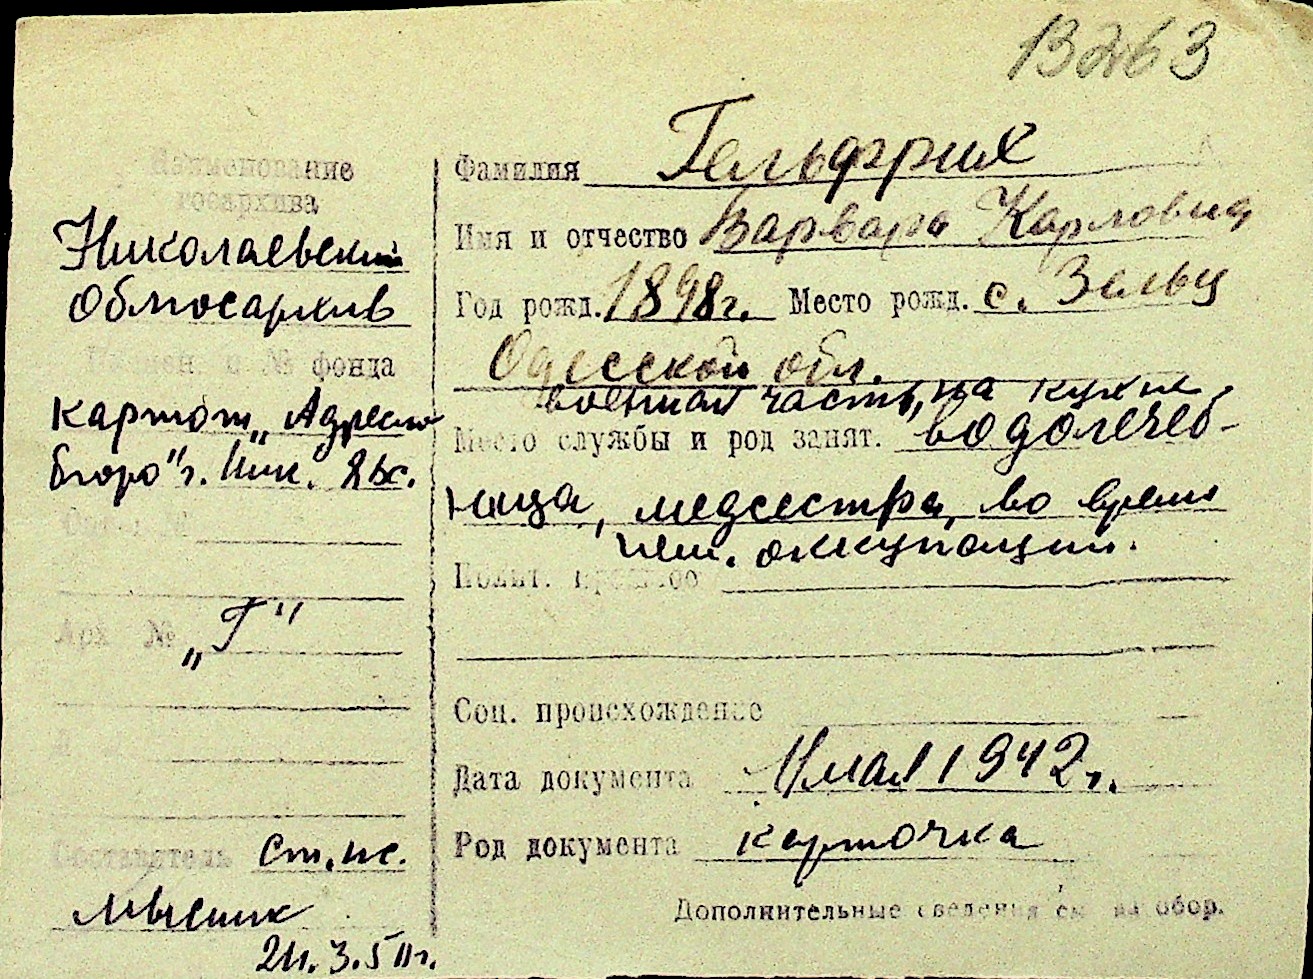 13263
Наименование
госархива
Николаевский
Облгосархив
Наимен. и № фонда
картот. „Адресно
бюро" г. Ник.
Опись №
Арх №
„Г"
Составитель ст. нс.
Мысик
Фамилия Гельфрих
Имя и отчество Варвара Карловна
Год рожд. 1898г. Место рожд. с. Зельц
Одесской обл.
военная часть, на кухне,
Место службы и род занят. водолечеб-
ница, медсестра, во время
нем. оккупации.
Полит. прошлое
Соц. происхождение
Дата документа мая 1942г.
Род документа карточка
Дополнительные сведения см на обор.